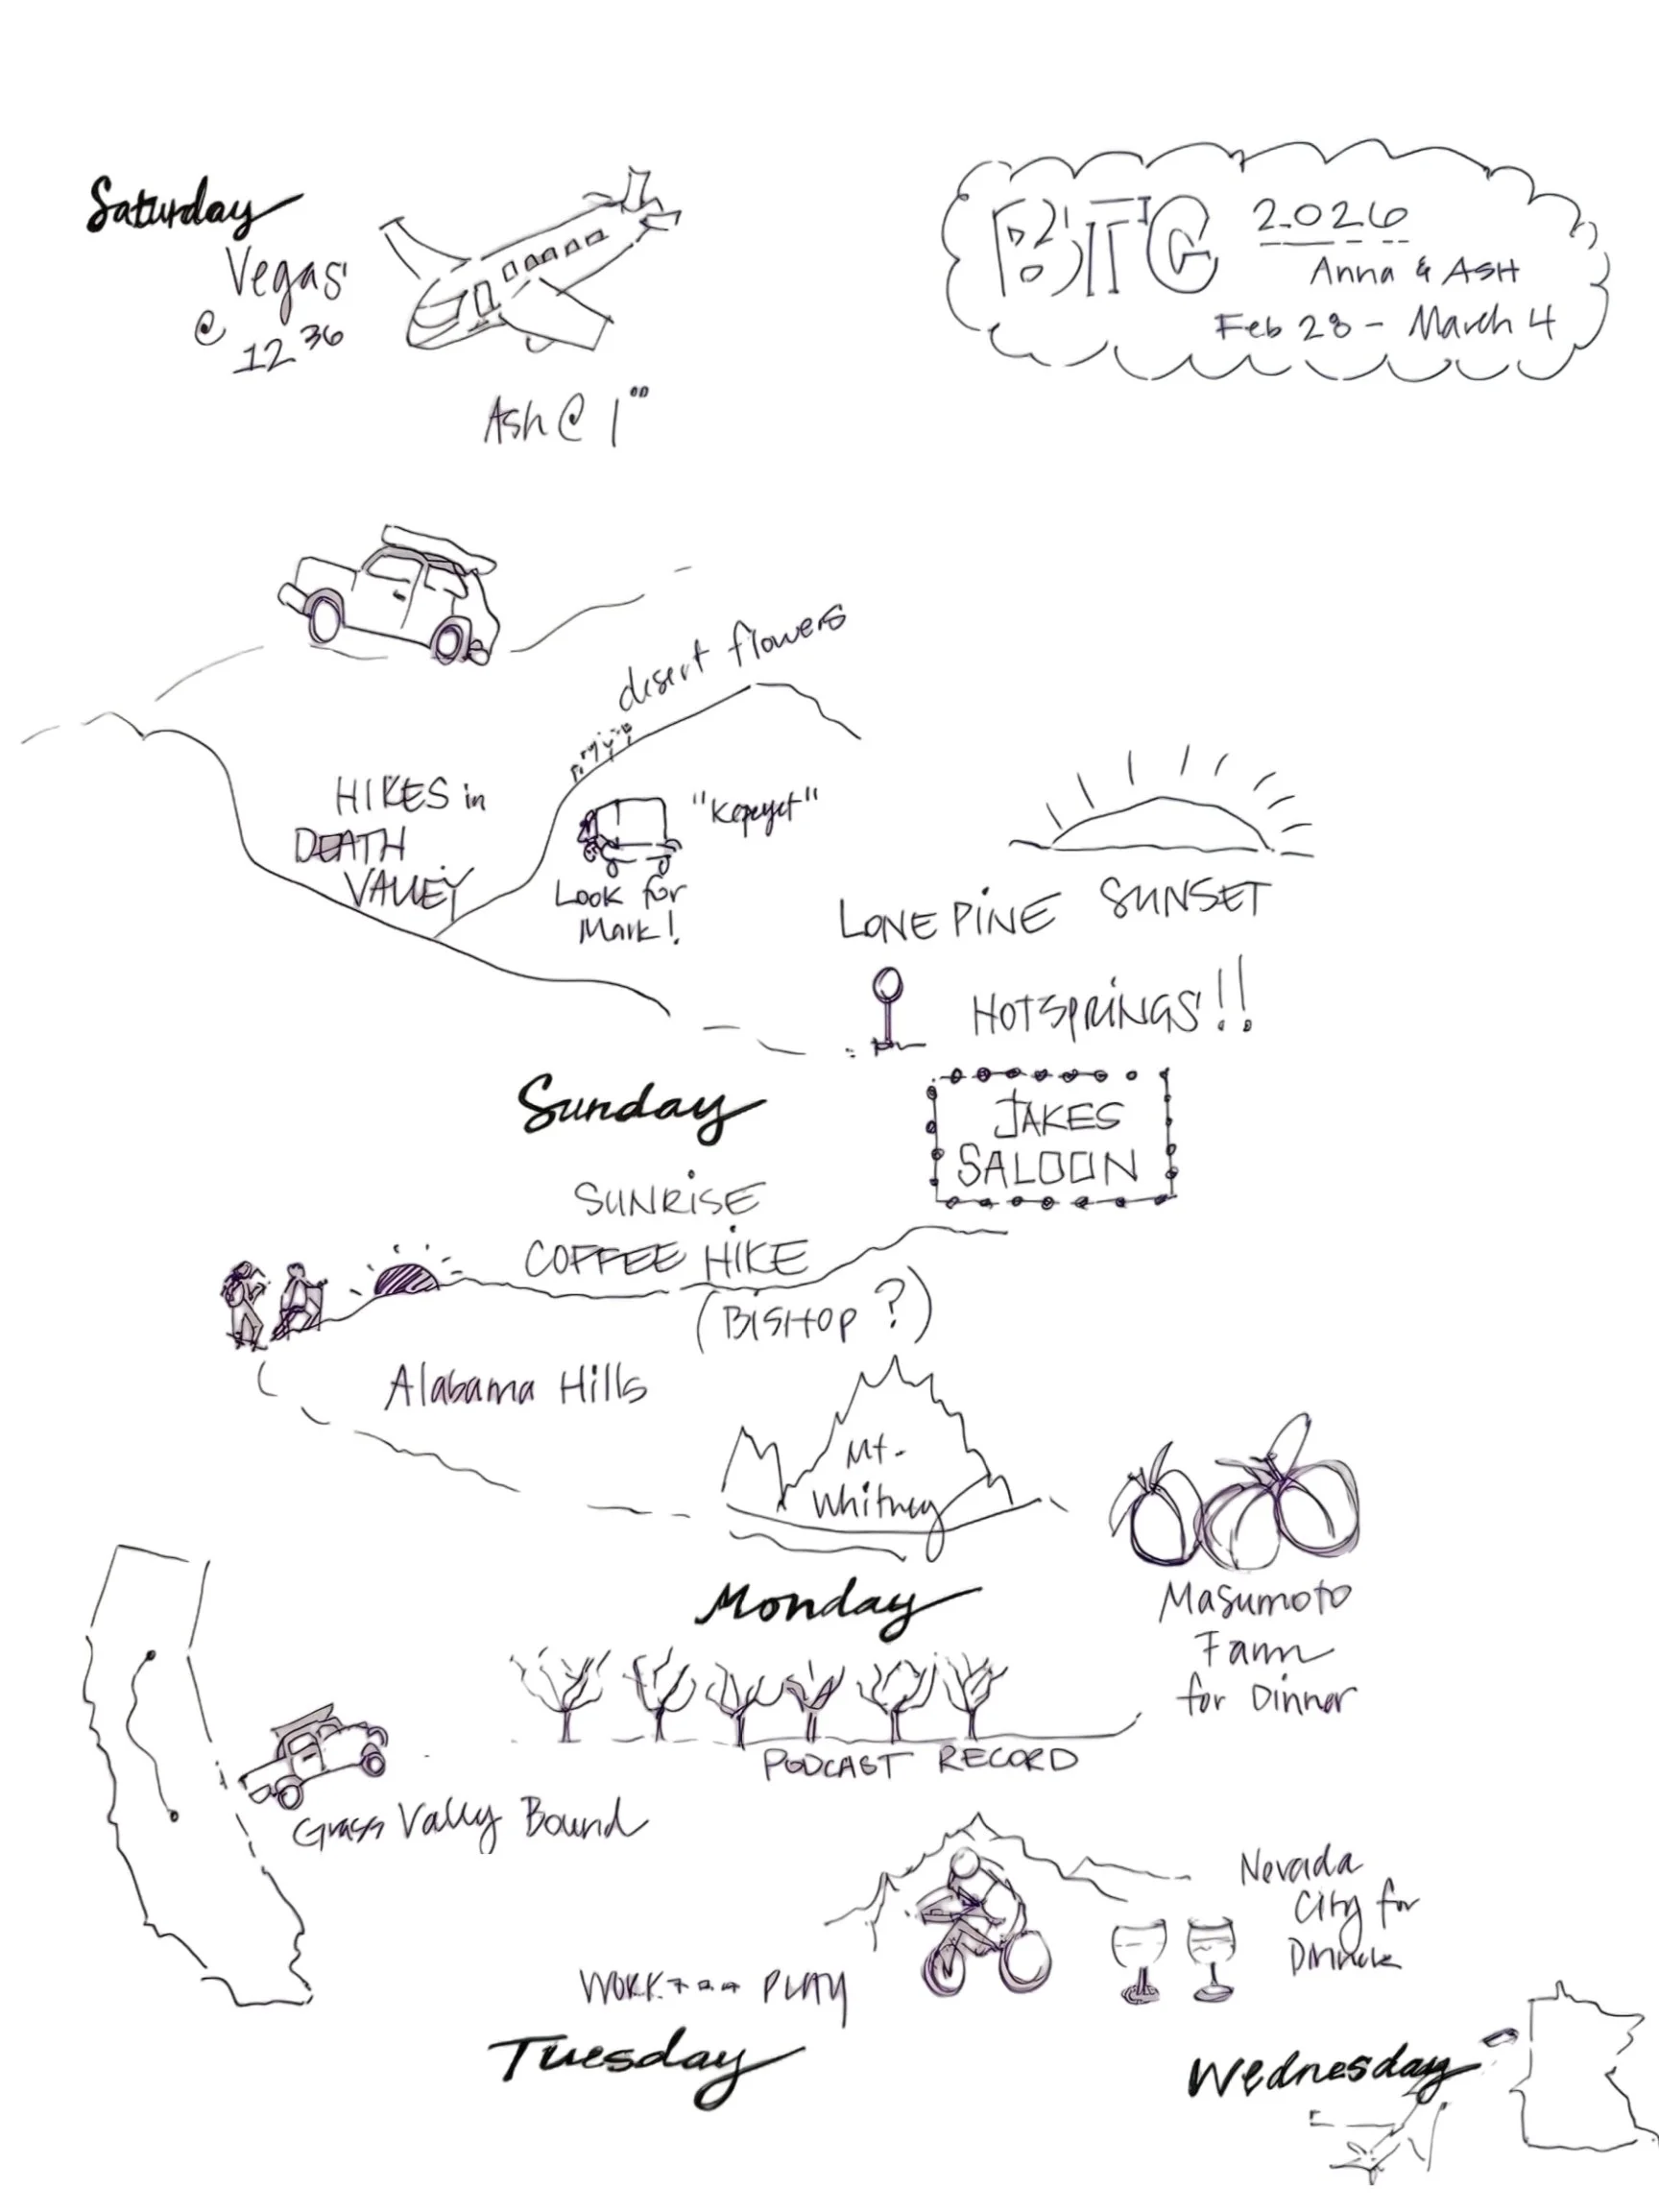 Saturday
Vegas
@ 12 36
Ash @ 1 00
BTG 2026
Anna & ASH
Feb 28 - March 4
desert flowers
HIKES in
DEATH
VALLEY
Look for
Mark!
LONE PINE SUNSET
HOTSPRINGS!!
JAKES
SALOON
Sunday
SUNRISE
COFFEE HIKE
(BISHOP?)
Alabama Hills
Mt.
Whitney
Masumoto
Farm
for Dinner
Monday
PODCAST RECORD
Grass Valley Bound
Nevada
City for
WORK PLAY
Tuesday
Wednesday